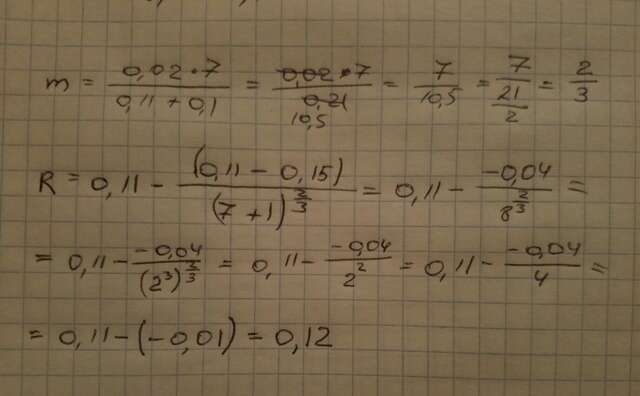 m = \frac{0,02 \cdot 7}{0,11 + 0,1} = \frac{\cancel{0,02} \cdot 7}{\cancel{0,21} \; 10,5} = \frac{7}{10,5} = \frac{7}{\frac{21}{2}} = \frac{2}{3}
R = 0,11 - \frac{(0,11 - 0,15)}{(7 + 1)^{\frac{2}{3}}} = 0,11 - \frac{-0,04}{8^{\frac{2}{3}}} =
= 0,11 - \frac{-0,04}{(2^3)^{\frac{2}{3}}} = 0,11 - \frac{-0,04}{2^2} = 0,11 - \frac{-0,04}{4} =
= 0,11 - (-0,01) = 0,12